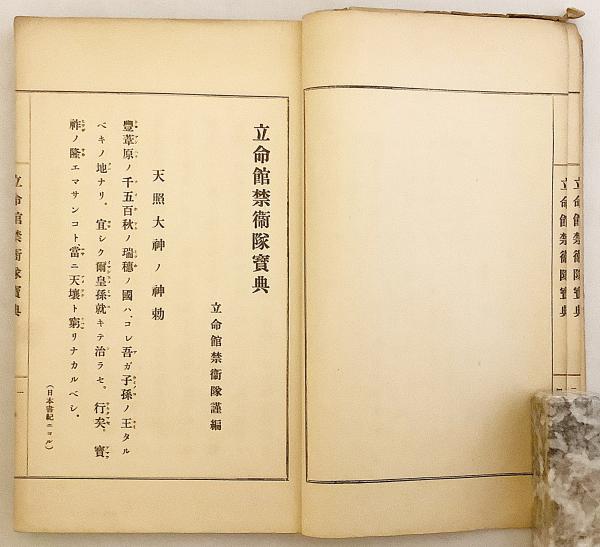 立命館禁衞隊寶典
立命館禁衞隊謹編
天照大神ノ神勅
豐葦原ノ千五百秋ノ瑞穗ノ國ハ、コレ吾ガ子孫ノ王タル
ベキノ地ナリ。宜シク爾皇孫就キテ治ラセ。行矣、寶
祚ノ隆エマサンコト當ニ天壤ト窮リナカルベシ。
(日本書紀ニヨル)
立命館禁衞隊寶典
一
立命館禁衞隊寶典
立命館禁衞隊寶典